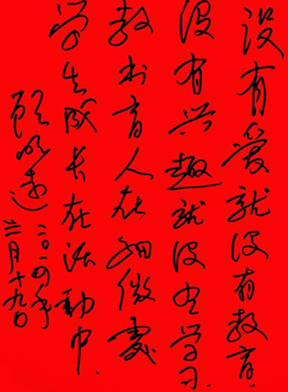 没有爱就没有教育
没有兴趣就没有学习
教书育人在细微处
学生成长在活动中.
顾明远
二〇一四年
三月十九日